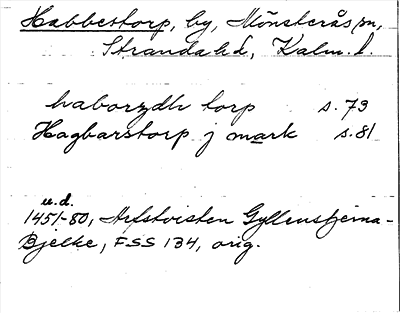 Habbestorp, by, Mönsterås sn,
Stranda hd, Kalm. l.
haborzdh torp s. 79
Hagbarstorp j mark s. 81
u.d.
1451-80, Arfstvisten Gyllenstjerna-
Bjelke, FSS 134, orig.